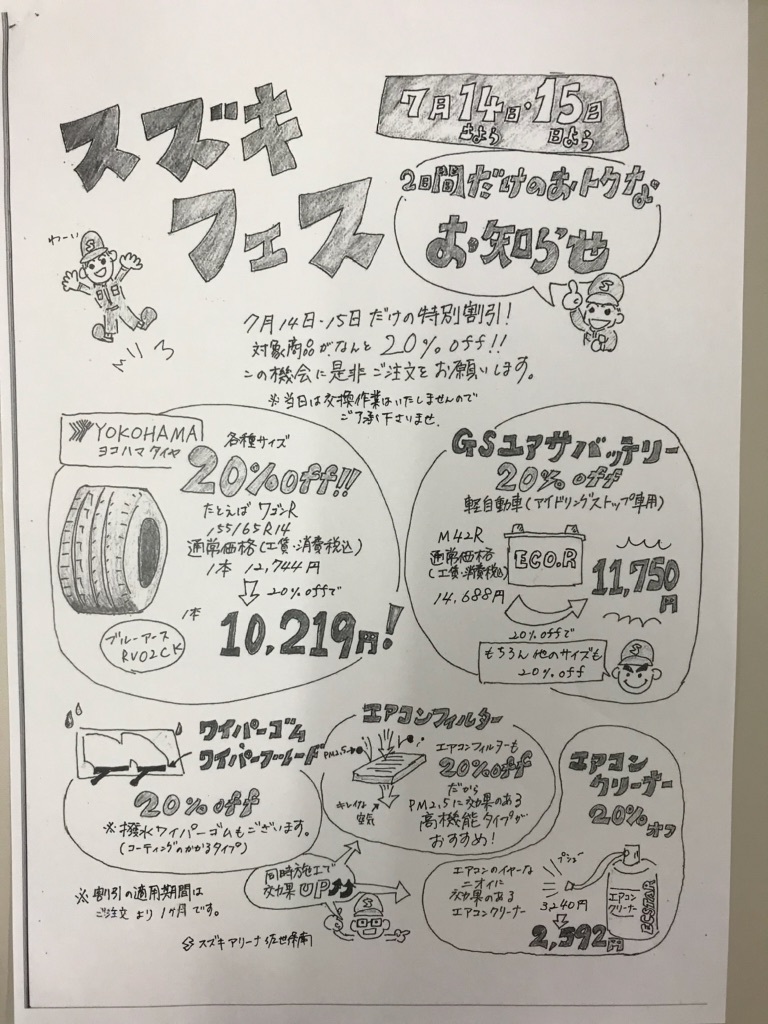 スズキ
フェス
7月14日・15日
土よう 日よう
2日間だけのおトクな
お知らせ
わーい
7月14日・15日だけの特別割引!
対象商品がなんと20%off!!
この機会に是非ご注文をお願いします。
※当日は交換作業はいたしませんので
ご了承下さいませ.
YOKOHAMA
ヨコハマタイヤ
各種サイズ
20%off!!
たとえばワゴンR
155/65R14
通常価格(工賃・消費税込)
1本 12,744円
20%offで
1本
10,219円!
ブルーアース
RV02CK
GSユアサバッテリー
20%off
軽自動車(アイドリングストップ車用)
M42R
通常価格
(工賃・消費税込)
14,688円
ECO.R
11,750円
20%offで
もちろん他のサイズも
20%off
ワイパーゴム
ワイパーブレード
20%off
※撥水ワイパーゴムもございます。
(コーティングのかかるタイプ)
エアコンフィルター
PM2.5
キレイな
空気
エアコンフィルターも
20%off
だから
PM2.5に効果のある
高機能タイプが
おすすめ!
エアコン
クリーナー
20%
オフ
エアコンのイヤーな
ニオイに
効果のある
エアコンクリーナー
プシュ
3,240円
2,592円
エアコン
クリーナー
ECSTAR
同時施工で
効果UP
※割引の適用期間は
ご注文より1ヶ月です。
スズキアリーナ佐世保南